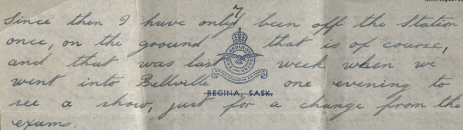 7
Since then I have only been off the Station
once, on the ground that is of course,
and that was last week when we
went into Bellville one evening to
REGINA, SASK.
see a show, just for a change from the
exams.